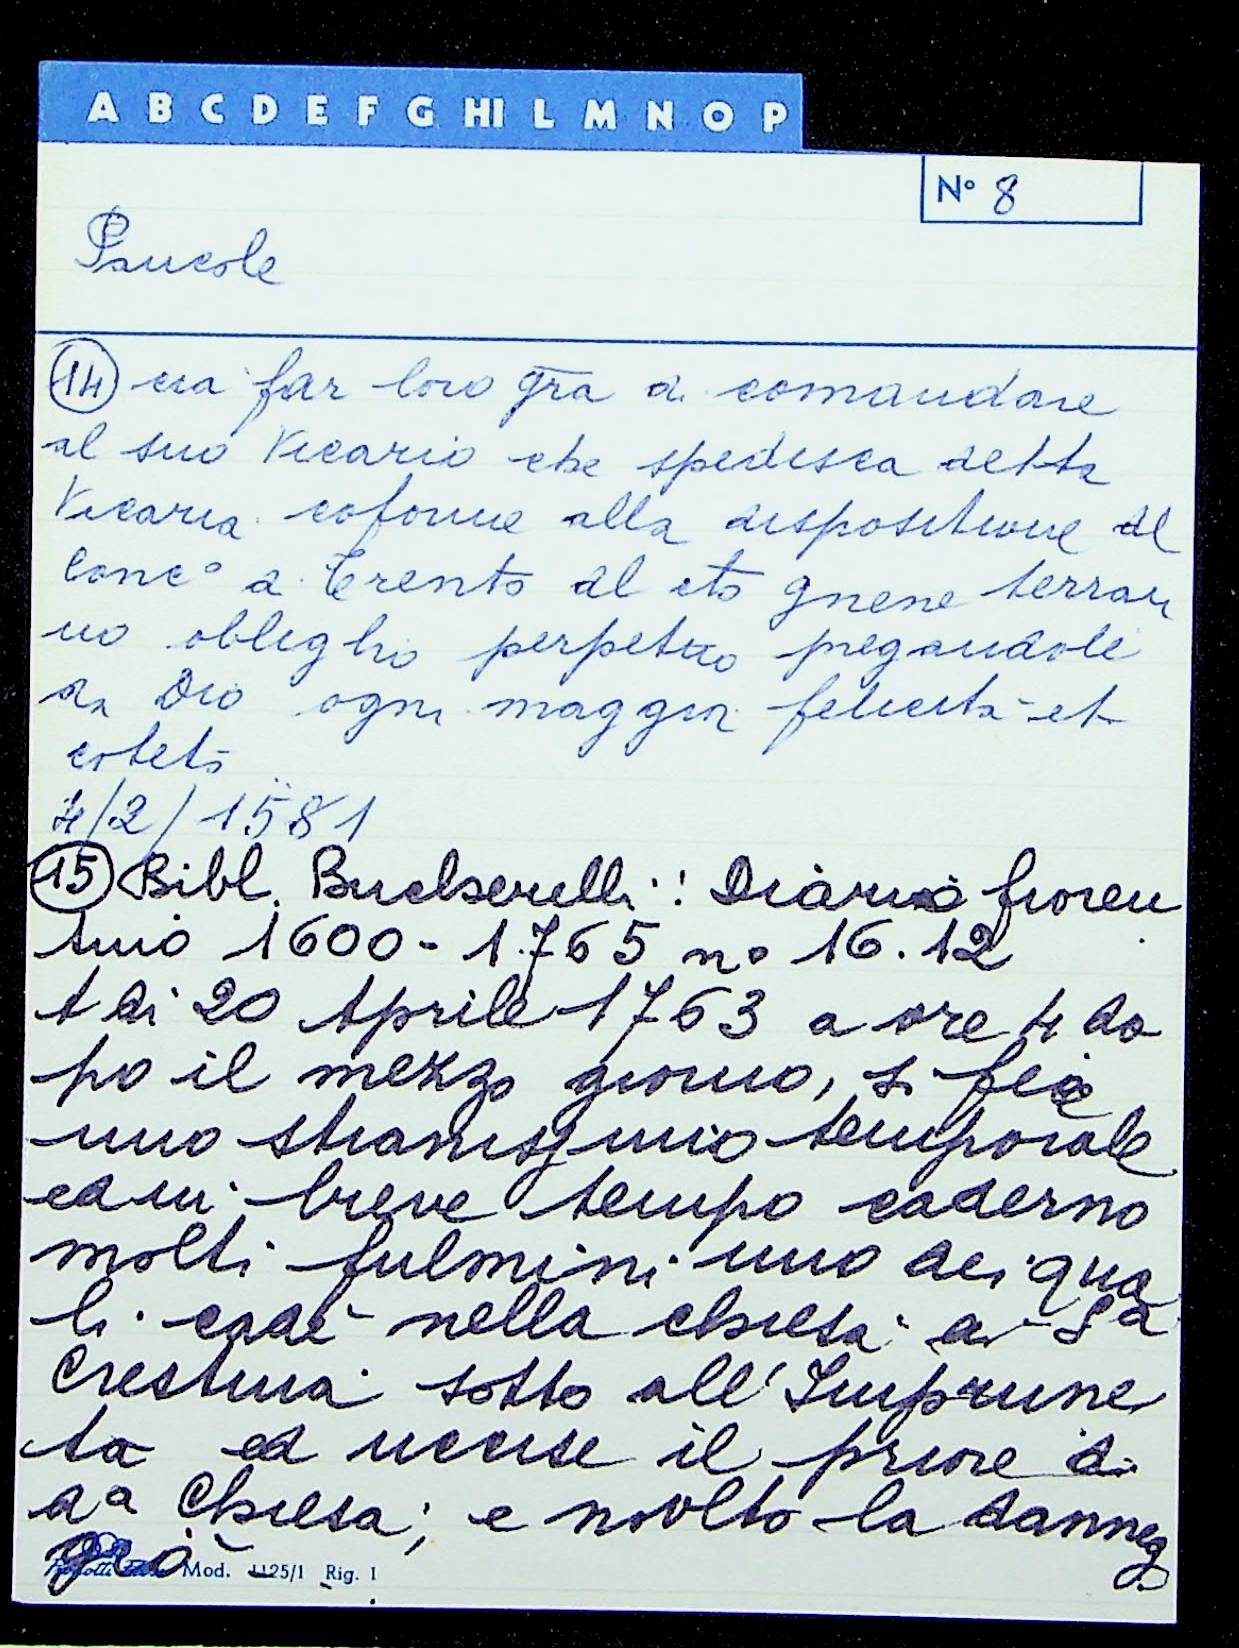 A B C D E F G HI L M N O P
N° 8
Pancole
14 cia far loro gra di comandare
al suo Vicario che spedisca detta
Vicaria coforme alla dispositione del
Conc° di Trento del
no obligho perpetuo pregandole
da Dio ogni maggior felicità et
4/2/1581
15 Bibl. Bucherelli: Diario fioren
tino 1600-1765 n° 16.12
A di 20 Aprile 1763 a ore 4 do
po il mezzo giorno, si fece
uno stranissimo temporale
ed in breve tempo caderno
molti fulmini uno dei qua
li cadè nella chiesa di S.a
Cristina sotto all'Imprune
ta ed uccise il priore di
d.a Chiesa; e molto la danneg
giò
Mod. 1125/1 Rig. 1